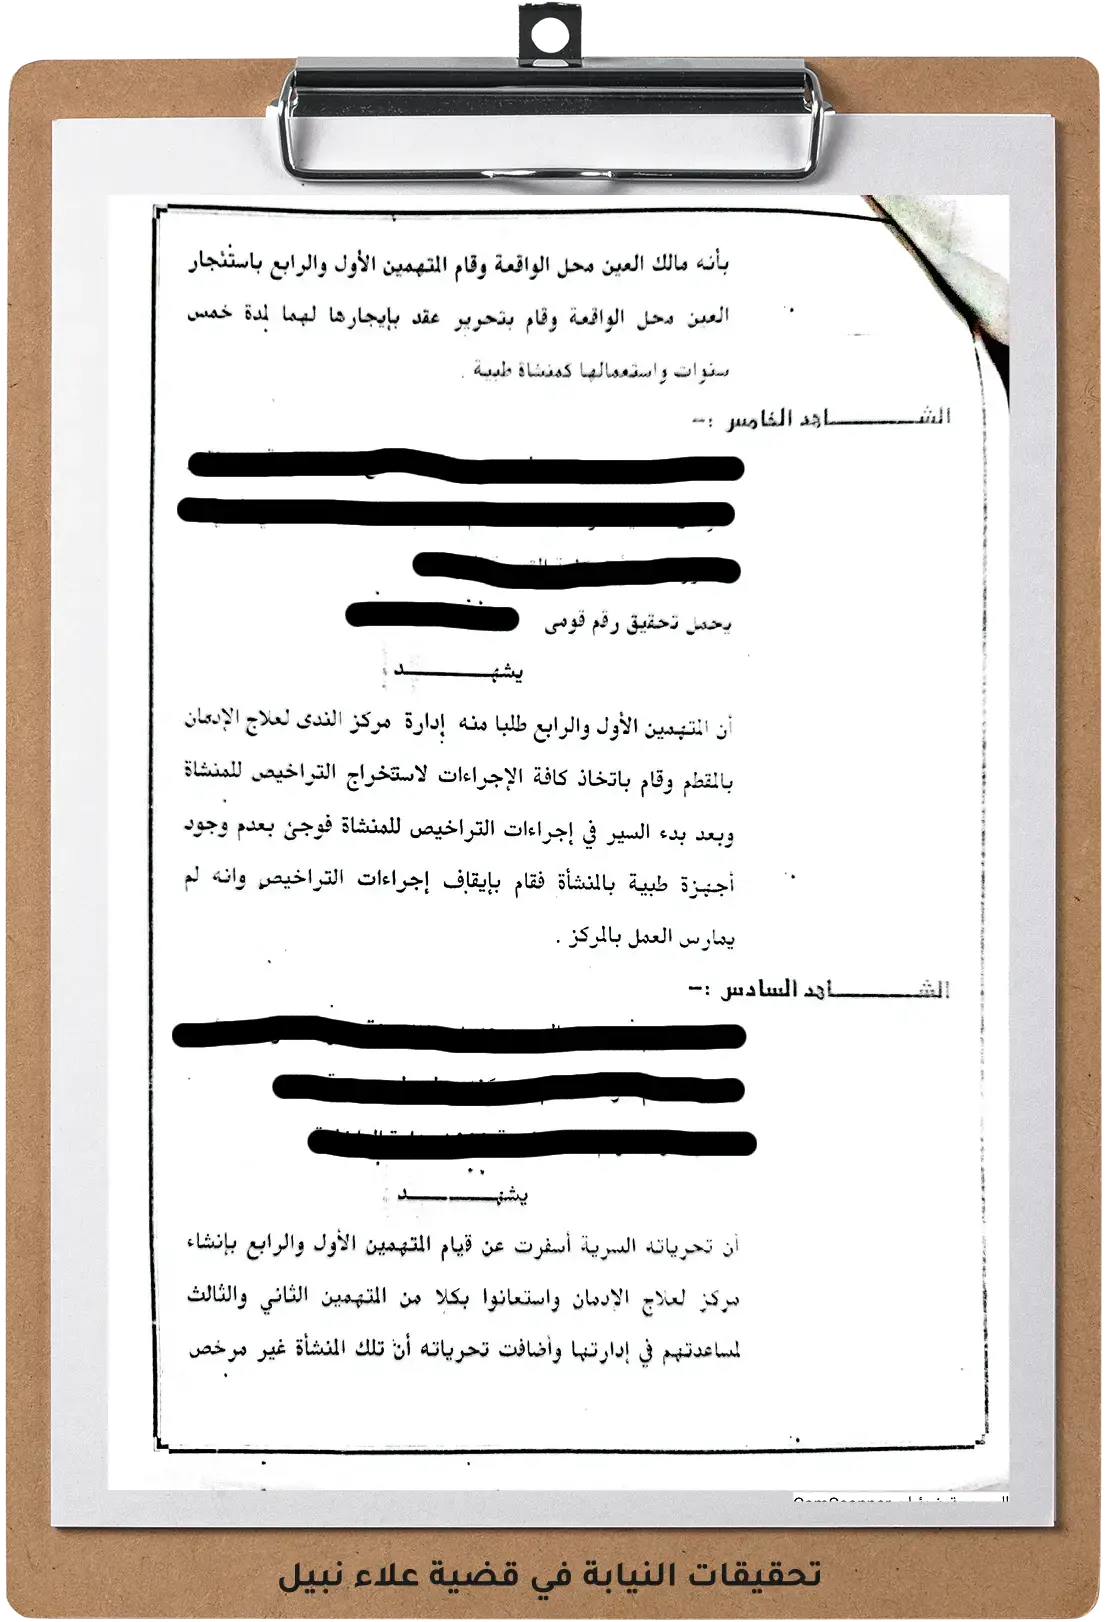 بأنه مالك العين محل الواقعة وقام المتهمين الأول والرابع باستئجار
العين محل الواقعة وقام بتحرير عقد بإيجارها لهما لمدة خمس
سنوات واستعمالها كمنشاة طبية .
الشـــــــاهد الخامس :-
يحمل تحقيق رقم قومى
يشهـــــــد
أن المتهمين الأول والرابع طلبا منه إدارة مركز الندى لعلاج الإدمان
بالمقطم وقام باتخاذ كافة الإجراءات لاستخراج التراخيص للمنشاة
وبعد بدء السير في إجراءات التراخيص للمنشاة فوجئ بعدم وجود
أجهزة طبية بالمنشأة فقام بإيقاف إجراءات التراخيص وانه لم
يمارس العمل بالمركز .
الشـــــــاهد السادس :-
يشهـــــــد
أن تحرياته السرية أسفرت عن قيام المتهمين الأول والرابع بإنشاء
مركز لعلاج الإدمان واستعانوا بكلا من المتهمين الثاني والثالث
لمساعدتهم في إدارتها وأضافت تحرياته أن تلك المنشأة غير مرخص
تحقيقات النيابة في قضية علاء نبيل